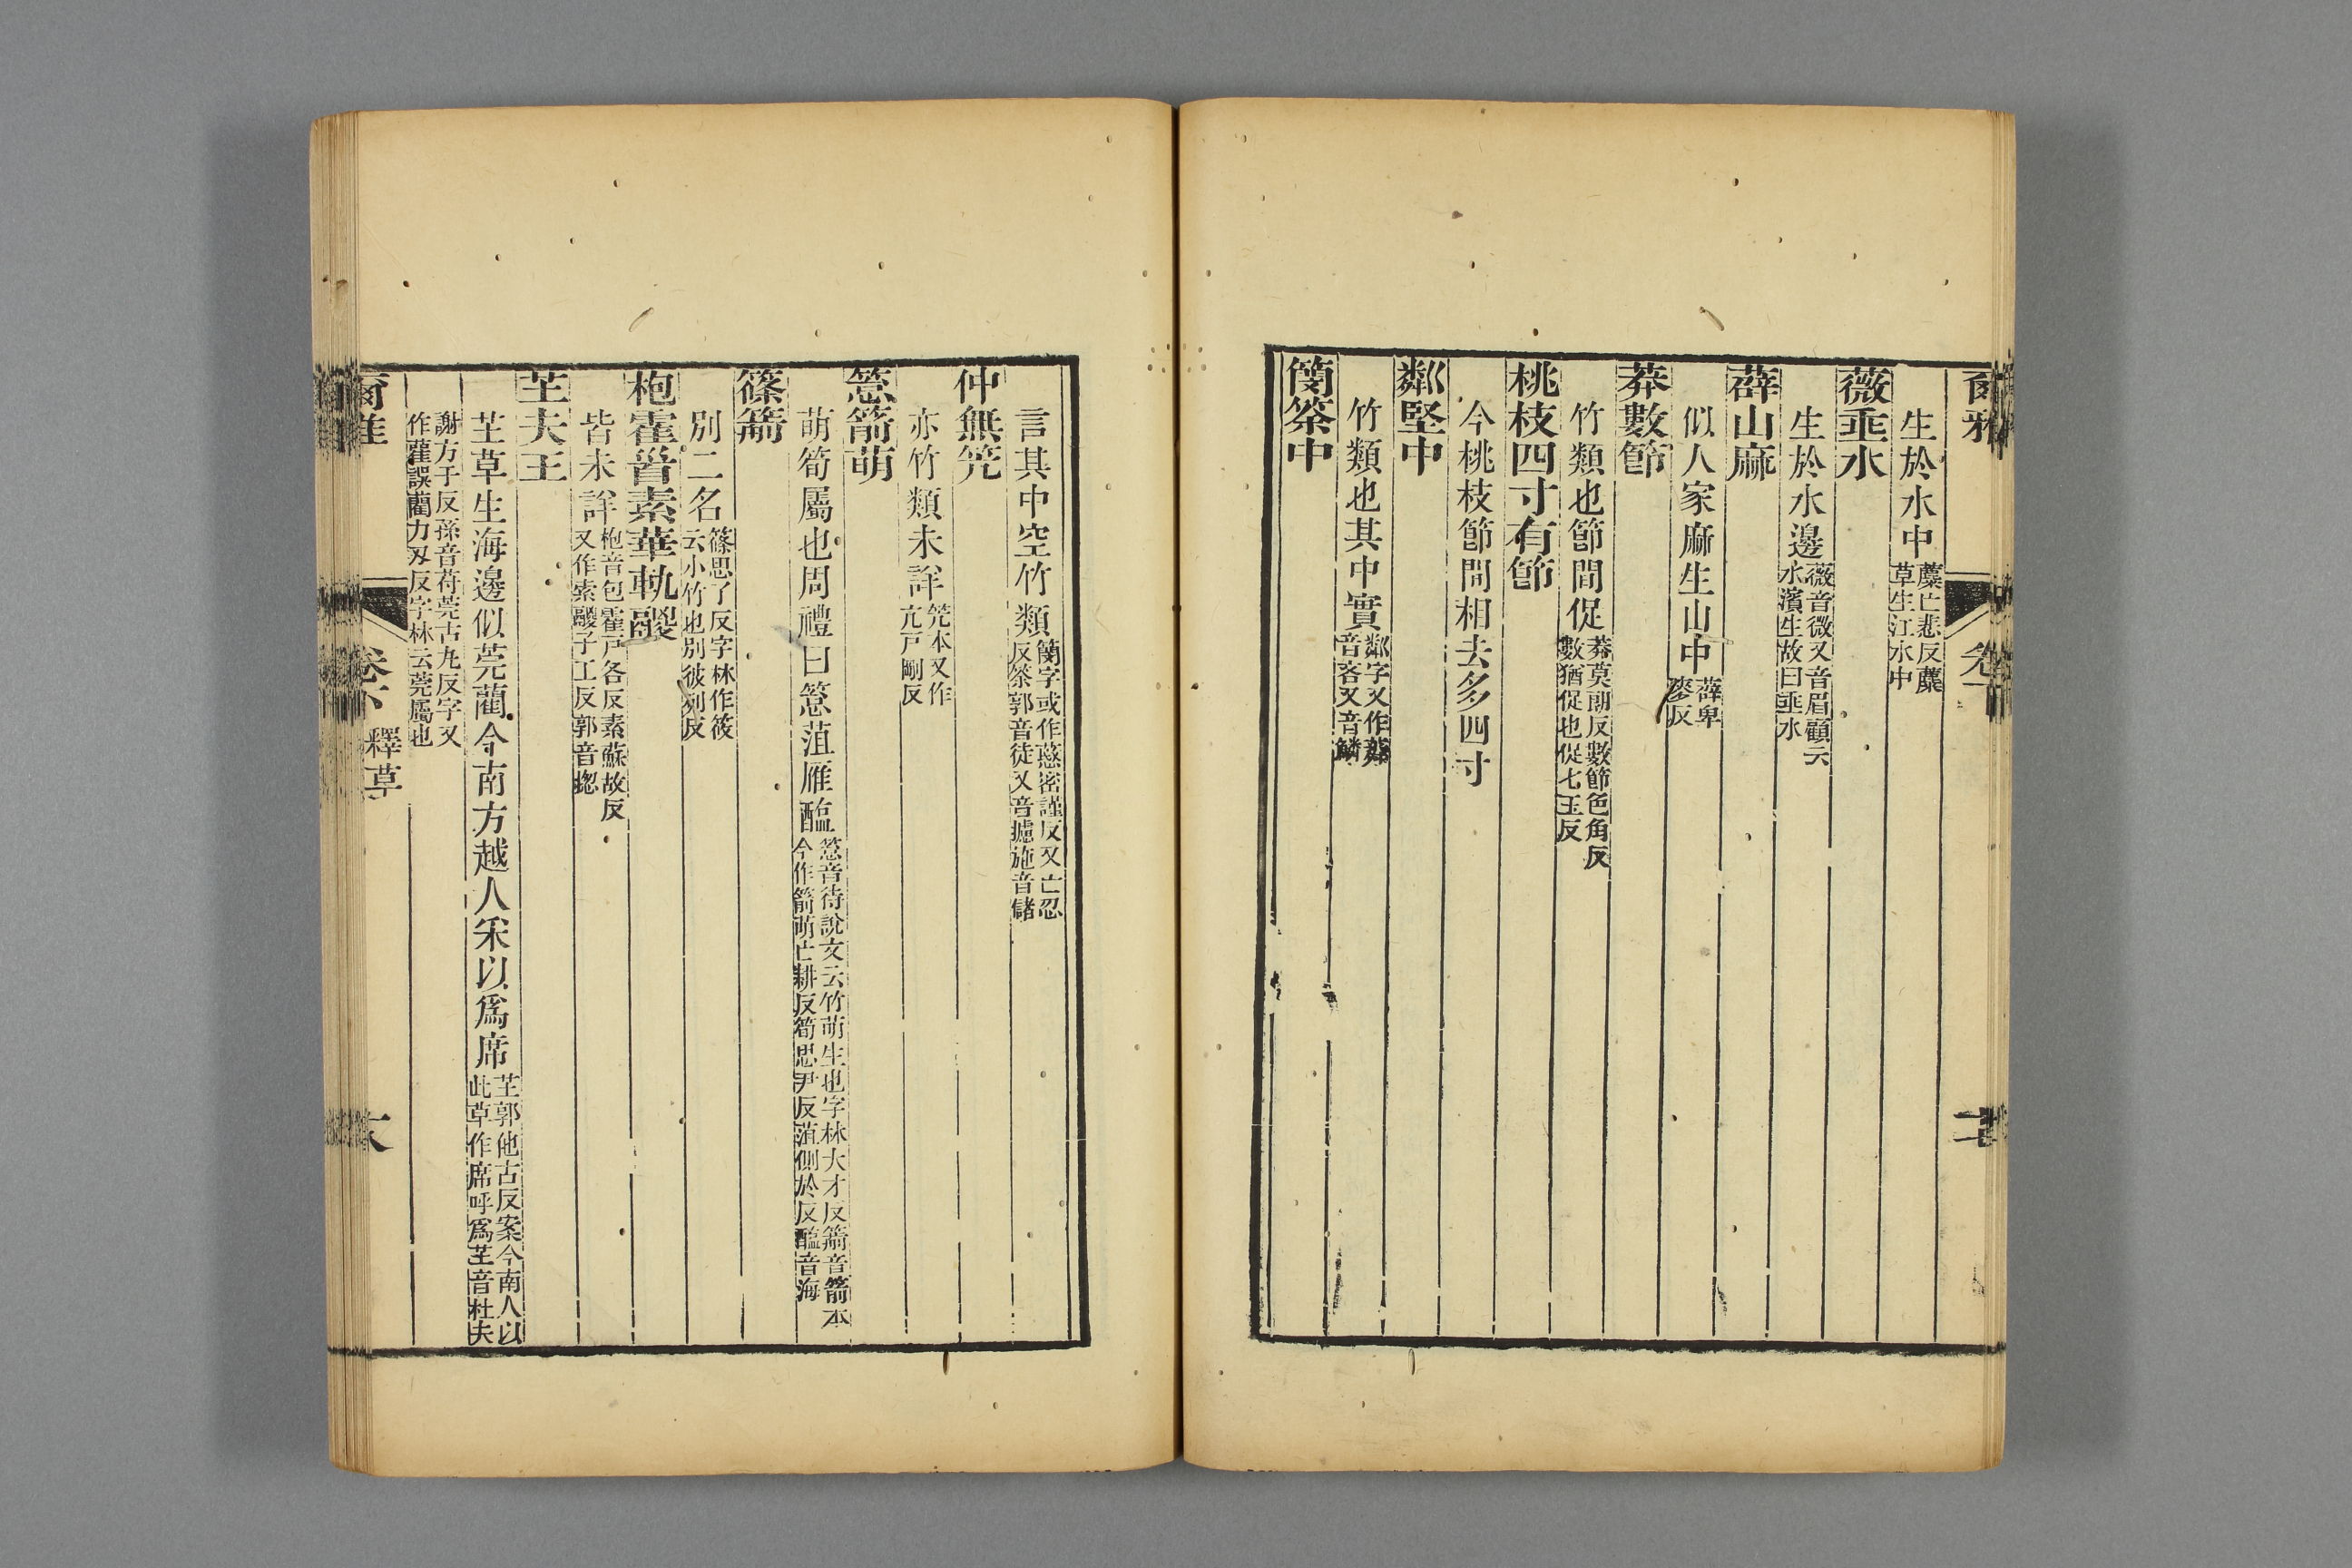 爾雅
卷下
十七
生於水中
蘪亡悲反蘪
草生江水中
薇垂水
生於水邊
薇音微又音眉顧云
水濱生故曰垂水
薜山麻
似人家麻生山中
薜卑
麥反
莽數節
竹類也節間促
莽莫朗反數節色角反
數猶促也促七玉反
桃枝四寸有節
今桃枝節間相去多四寸
粼堅中
竹類也其中實
粼字又作
音吝又音
簢筡中
言其中空竹類
簢字或作𢠸密謹反又亡忍
反筡郭音徒又音攄施音儲
仲無笐
亦竹類未詳
笐本又作
亢戸剛反
篙箭萌
萌筍屬也周禮曰䈚菹雁醢
䈚音待說文云竹萌生也字林大才反箭音箭本
今作箭萌亡耕反筍思尹反菹側於反醢音海
篠箭
別二名
篠思了反字林作筱
云小竹也別彼列反
枹霍首素華軌鬷
皆未詳
枹音包霍戸各反素蘇故反
又作索鬷子工反郭音揔
芏夫王
芏草生海邊似莞藺今南方越人采以爲席
芏郭他古反案今南人以
此草作席呼爲芏音杜夫
謝方于反孫音苻莞古九反字又
作雚誤藺力刃反字林云莞屬也
爾雅
卷下
釋草